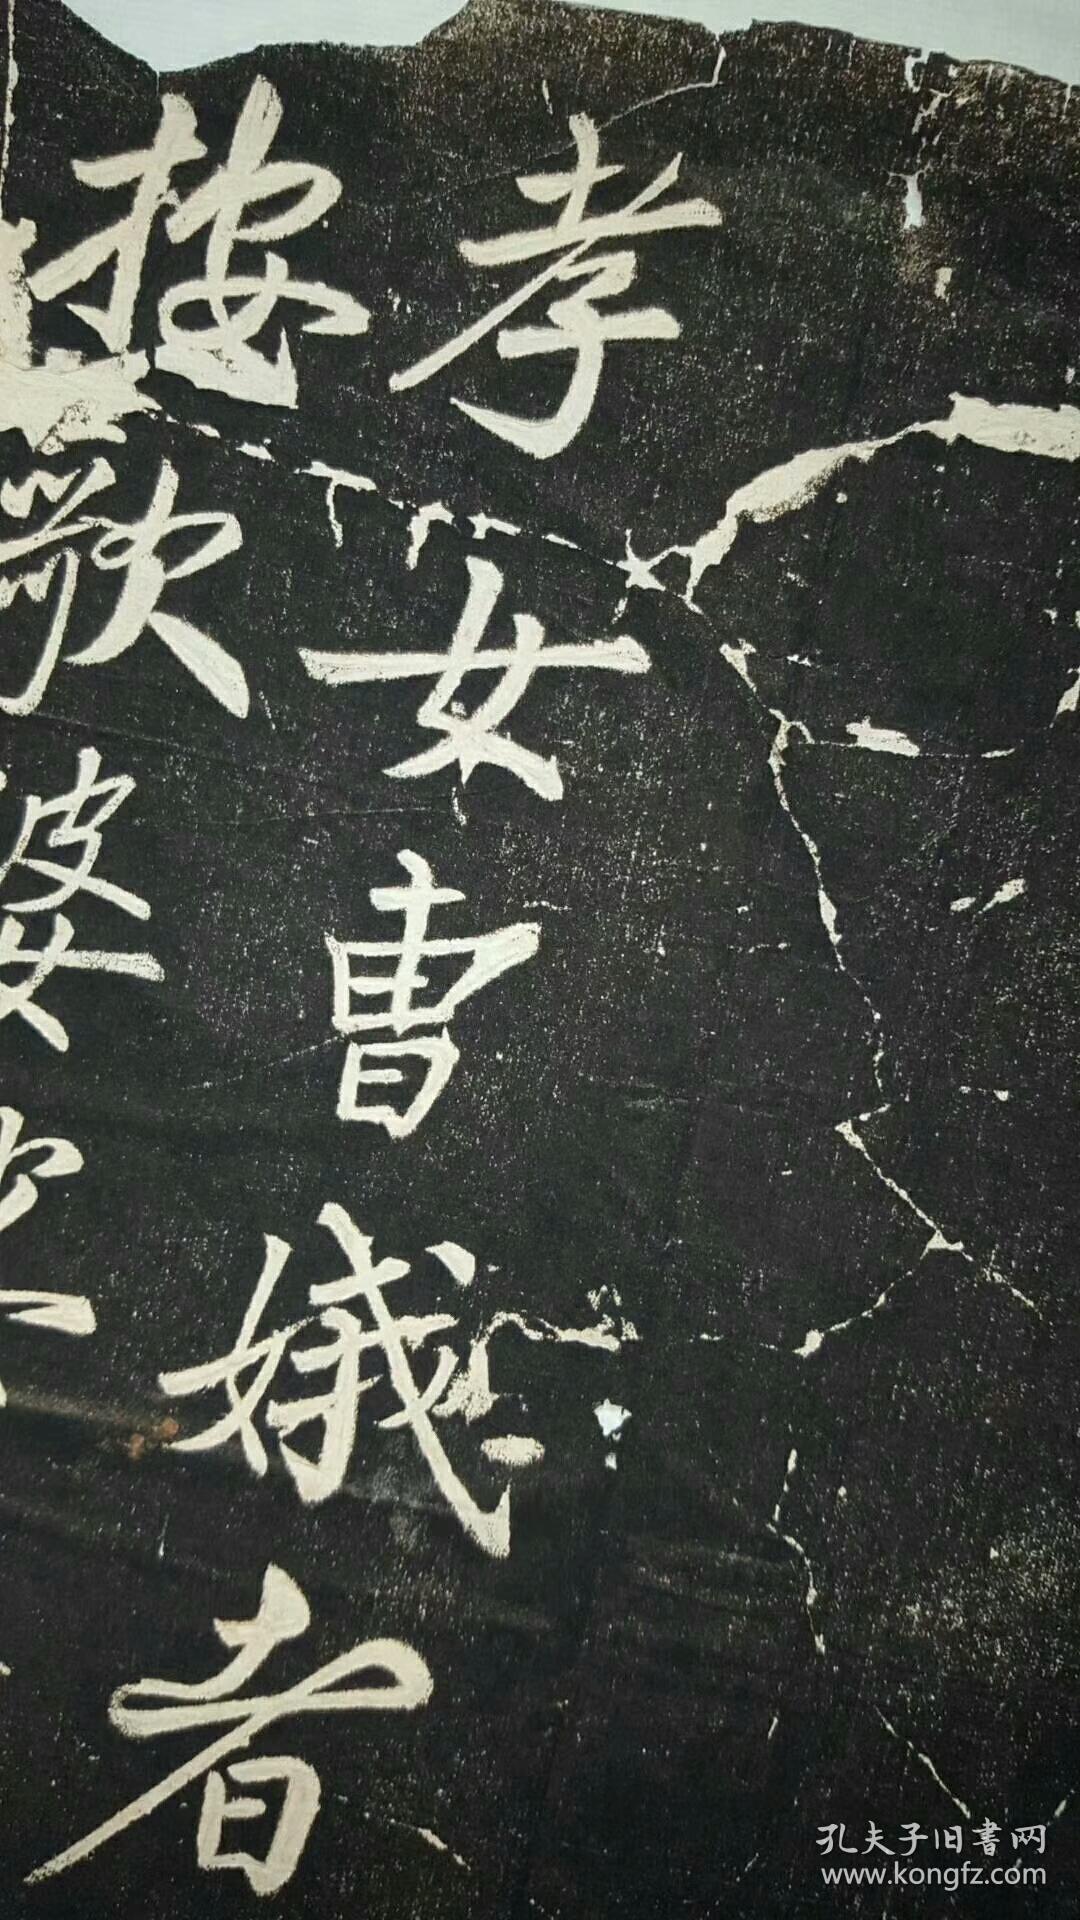 孝女曹娥者
按歌婆娑
孔夫子旧書网
www.kongfz.com